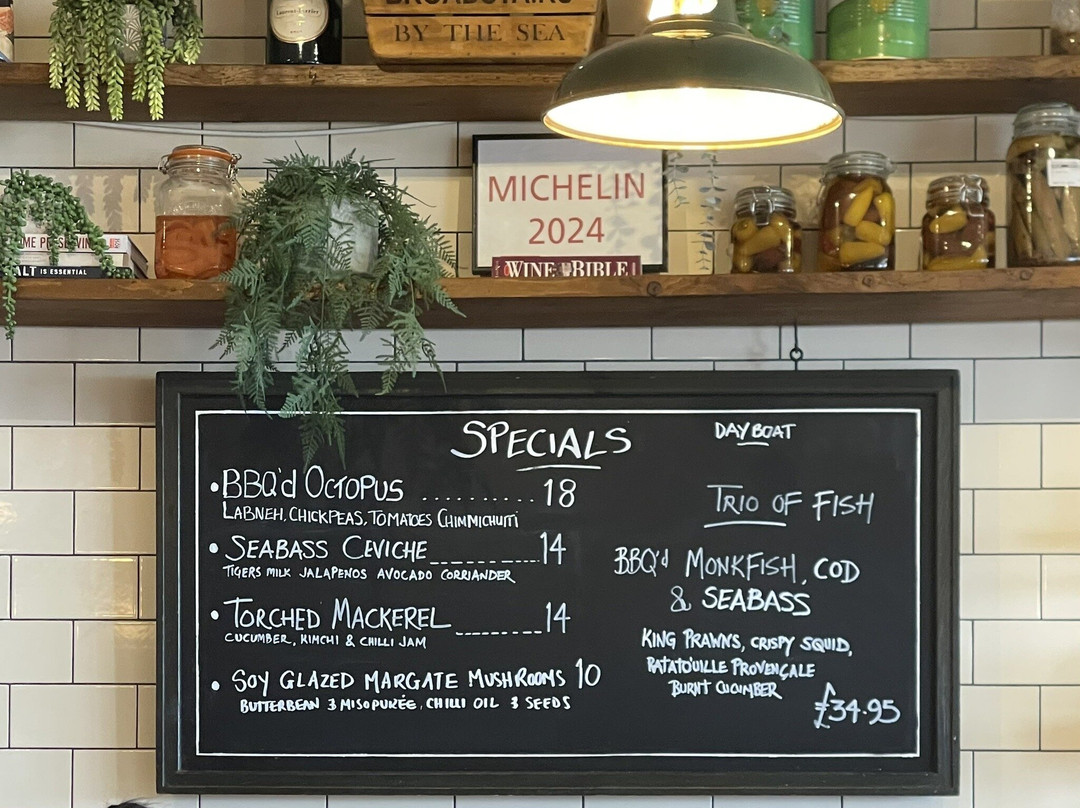 BROADSTAIRS
BY THE SEA
MICHELIN
2024
WINE BIBLE
ALT IS ESSENTIAL
SPECIALS
•BBQ'd OCTOPUS .......... 18
LABNEH, CHICKPEAS, TOMATOES CHIMMICHURRI
• SEABASS CEVICHE 14
TIGERS MILK JALAPENOS AVOCADO CORRIANDER
• TORCHED MACKEREL 14
CUCUMBER, KIMCHI & CHILLI JAM
• SOY GLAZED MARGATE MUSHROOMS 10
BUTTERBEAN & MISO PURÉE, CHILLI OIL & SEEDS
DAY BOAT
TRIO OF FISH
BBQ'd MONKFISH, COD
& SEABASS
KING PRAWNS, CRISPY SQUID,
RATATOUILLE PROVENÇALE
BURNT CUCUMBER
£34.95